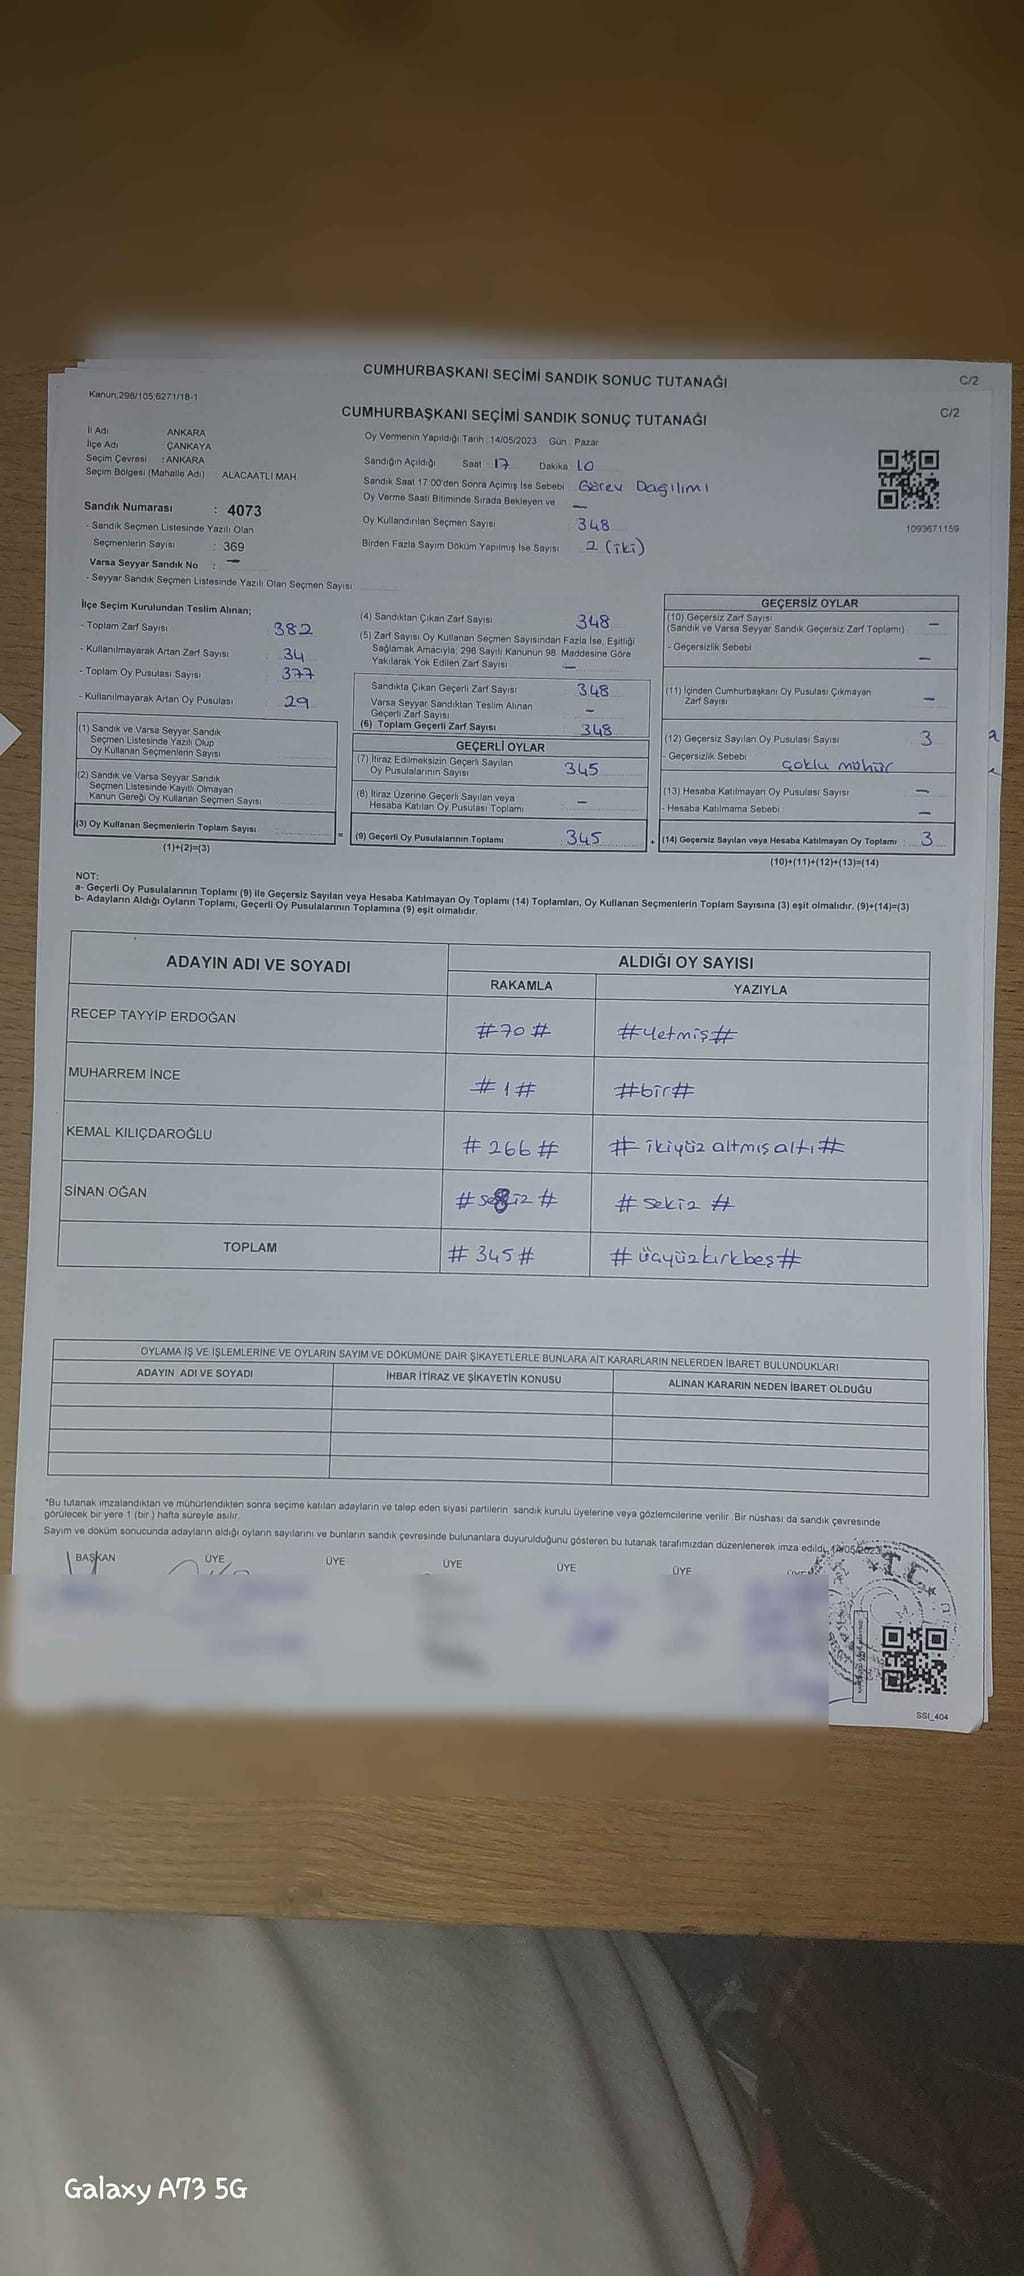 CUMHURBAŞKANI SEÇİMİ SANDIK SONUC TUTANAĞI
C/2
Kanun;298/105;6271/18-1
CUMHURBAŞKANI SEÇİMİ SANDIK SONUÇ TUTANAĞI
C/2
İl Adı ANKARA
İlçe Adı : ÇANKAYA
Seçim Çevresi : ANKARA
Seçim Bölgesi (Mahalle Adı) : ALACAATLI MAH.
Oy Vermenin Yapıldığı Tarih 14/05/2023 Gün : Pazar
Sandığın Açıldığı Saat 17 Dakika 10
Sandık Saat 17:00'den Sonra Açımış İse Sebebi Görev Dağılımı
Oy Verme Saati Bitiminde Sırada Bekleyen ve –
Oy Kullandırılan Seçmen Sayısı 348
Birden Fazla Sayım Döküm Yapılmış İse Sayısı 2 (iki)
1093671159
Sandık Numarası : 4073
- Sandık Seçmen Listesinde Yazılı Olan
Seçmenlerin Sayısı : 369
Varsa Seyyar Sandık No : –
- Seyyar Sandık Seçmen Listesinde Yazılı Olan Seçmen Sayısı
İlçe Seçim Kurulundan Teslim Alınan;
- Toplam Zarf Sayısı 382
- Kullanılmayarak Artan Zarf Sayısı 34
- Toplam Oy Pusulası Sayısı 377
- Kullanılmayarak Artan Oy Pusulası 29
(1) Sandık ve Varsa Seyyar Sandık
Seçmen Listesinde Yazılı Olup
Oy Kullanan Seçmenlerin Sayısı
(2) Sandık ve Varsa Seyyar Sandık
Seçmen Listesinde Kayıtlı Olmayan
Kanun Gereği Oy Kullanan Seçmen Sayısı
(3) Oy Kullanan Seçmenlerin Toplam Sayısı
(1)+(2)=(3)
=
(4) Sandıktan Çıkan Zarf Sayısı 348
(5) Zarf Sayısı Oy Kullanan Seçmen Sayısından Fazla İse, Eşitliği
Sağlamak Amacıyla, 298 Sayılı Kanunun 98. Maddesine Göre
Yakılarak Yok Edilen Zarf Sayısı –
Sandıkta Çıkan Geçerli Zarf Sayısı 348
Varsa Seyyar Sandıktan Teslim Alınan
Geçerli Zarf Sayısı –
(6) Toplam Geçerli Zarf Sayısı 348
GEÇERLİ OYLAR
(7) İtiraz Edilmeksizin Geçerli Sayılan
Oy Pusulalarının Sayısı 345
(8) İtiraz Üzerine Geçerli Sayılan veya
Hesaba Katılan Oy Pusulası Toplamı –
(9) Geçerli Oy Pusulalarının Toplamı 345
+
GEÇERSİZ OYLAR
(10) Geçersiz Zarf Sayısı –
(Sandık ve Varsa Seyyar Sandık Geçersiz Zarf Toplamı)
- Geçersizlik Sebebi –
(11) İçinden Cumhurbaşkanı Oy Pusulası Çıkmayan
Zarf Sayısı –
(12) Geçersiz Sayılan Oy Pusulası Sayısı 3
- Geçersizlik Sebebi çoklu mühür
(13) Hesaba Katılmayan Oy Pusulası Sayısı –
- Hesaba Katılmama Sebebi –
(14) Geçersiz Sayılan veya Hesaba Katılmayan Oy Toplamı : 3
(10)+(11)+(12)+(13)=(14)
NOT:
a- Geçerli Oy Pusulalarının Toplamı (9) ile Geçersiz Sayılan veya Hesaba Katılmayan Oy Toplamı (14) Toplamları, Oy Kullanan Seçmenlerin Toplam Sayısına (3) eşit olmalıdır. (9)+(14)=(3)
b- Adayların Aldığı Oyların Toplamı, Geçerli Oy Pusulalarının Toplamına (9) eşit olmalıdır.
ADAYIN ADI VE SOYADI
ALDIĞI OY SAYISI
RAKAMLA YAZIYLA
RECEP TAYYİP ERDOĞAN #70# #Yetmiş#
MUHARREM İNCE #1# #bir#
KEMAL KILIÇDAROĞLU #266# #ikiyüz altmış altı#
SİNAN OĞAN #8# #sekiz#
TOPLAM #345# #üçyüzkırkbeş#
OYLAMA İŞ VE İŞLEMLERİNE VE OYLARIN SAYIM VE DÖKÜMÜNE DAİR ŞİKAYETLERLE BUNLARA AİT KARARLARIN NELERDEN İBARET BULUNDUKLARI
ADAYIN ADI VE SOYADI İHBAR İTİRAZ VE ŞİKAYETİN KONUSU ALINAN KARARIN NEDEN İBARET OLDUĞU
*Bu tutanak imzalandıktan ve mühürlendikten sonra seçime katılan adayların ve talep eden siyasi partilerin sandık kurulu üyelerine veya gözlemcilerine verilir. Bir nüshası da sandık çevresinde
görülecek bir yere 1 (bir) hafta süreyle asılır.
Sayım ve döküm sonucunda adayların aldığı oyların sayılarını ve bunların sandık çevresinde bulunanlara duyurulduğunu gösteren bu tutanak tarafımızdan düzenlenerek imza edildi. 14/05/2023
BAŞKAN ÜYE ÜYE ÜYE ÜYE ÜYE ÜYE
T.C.
SSI_404
Galaxy A73 5G